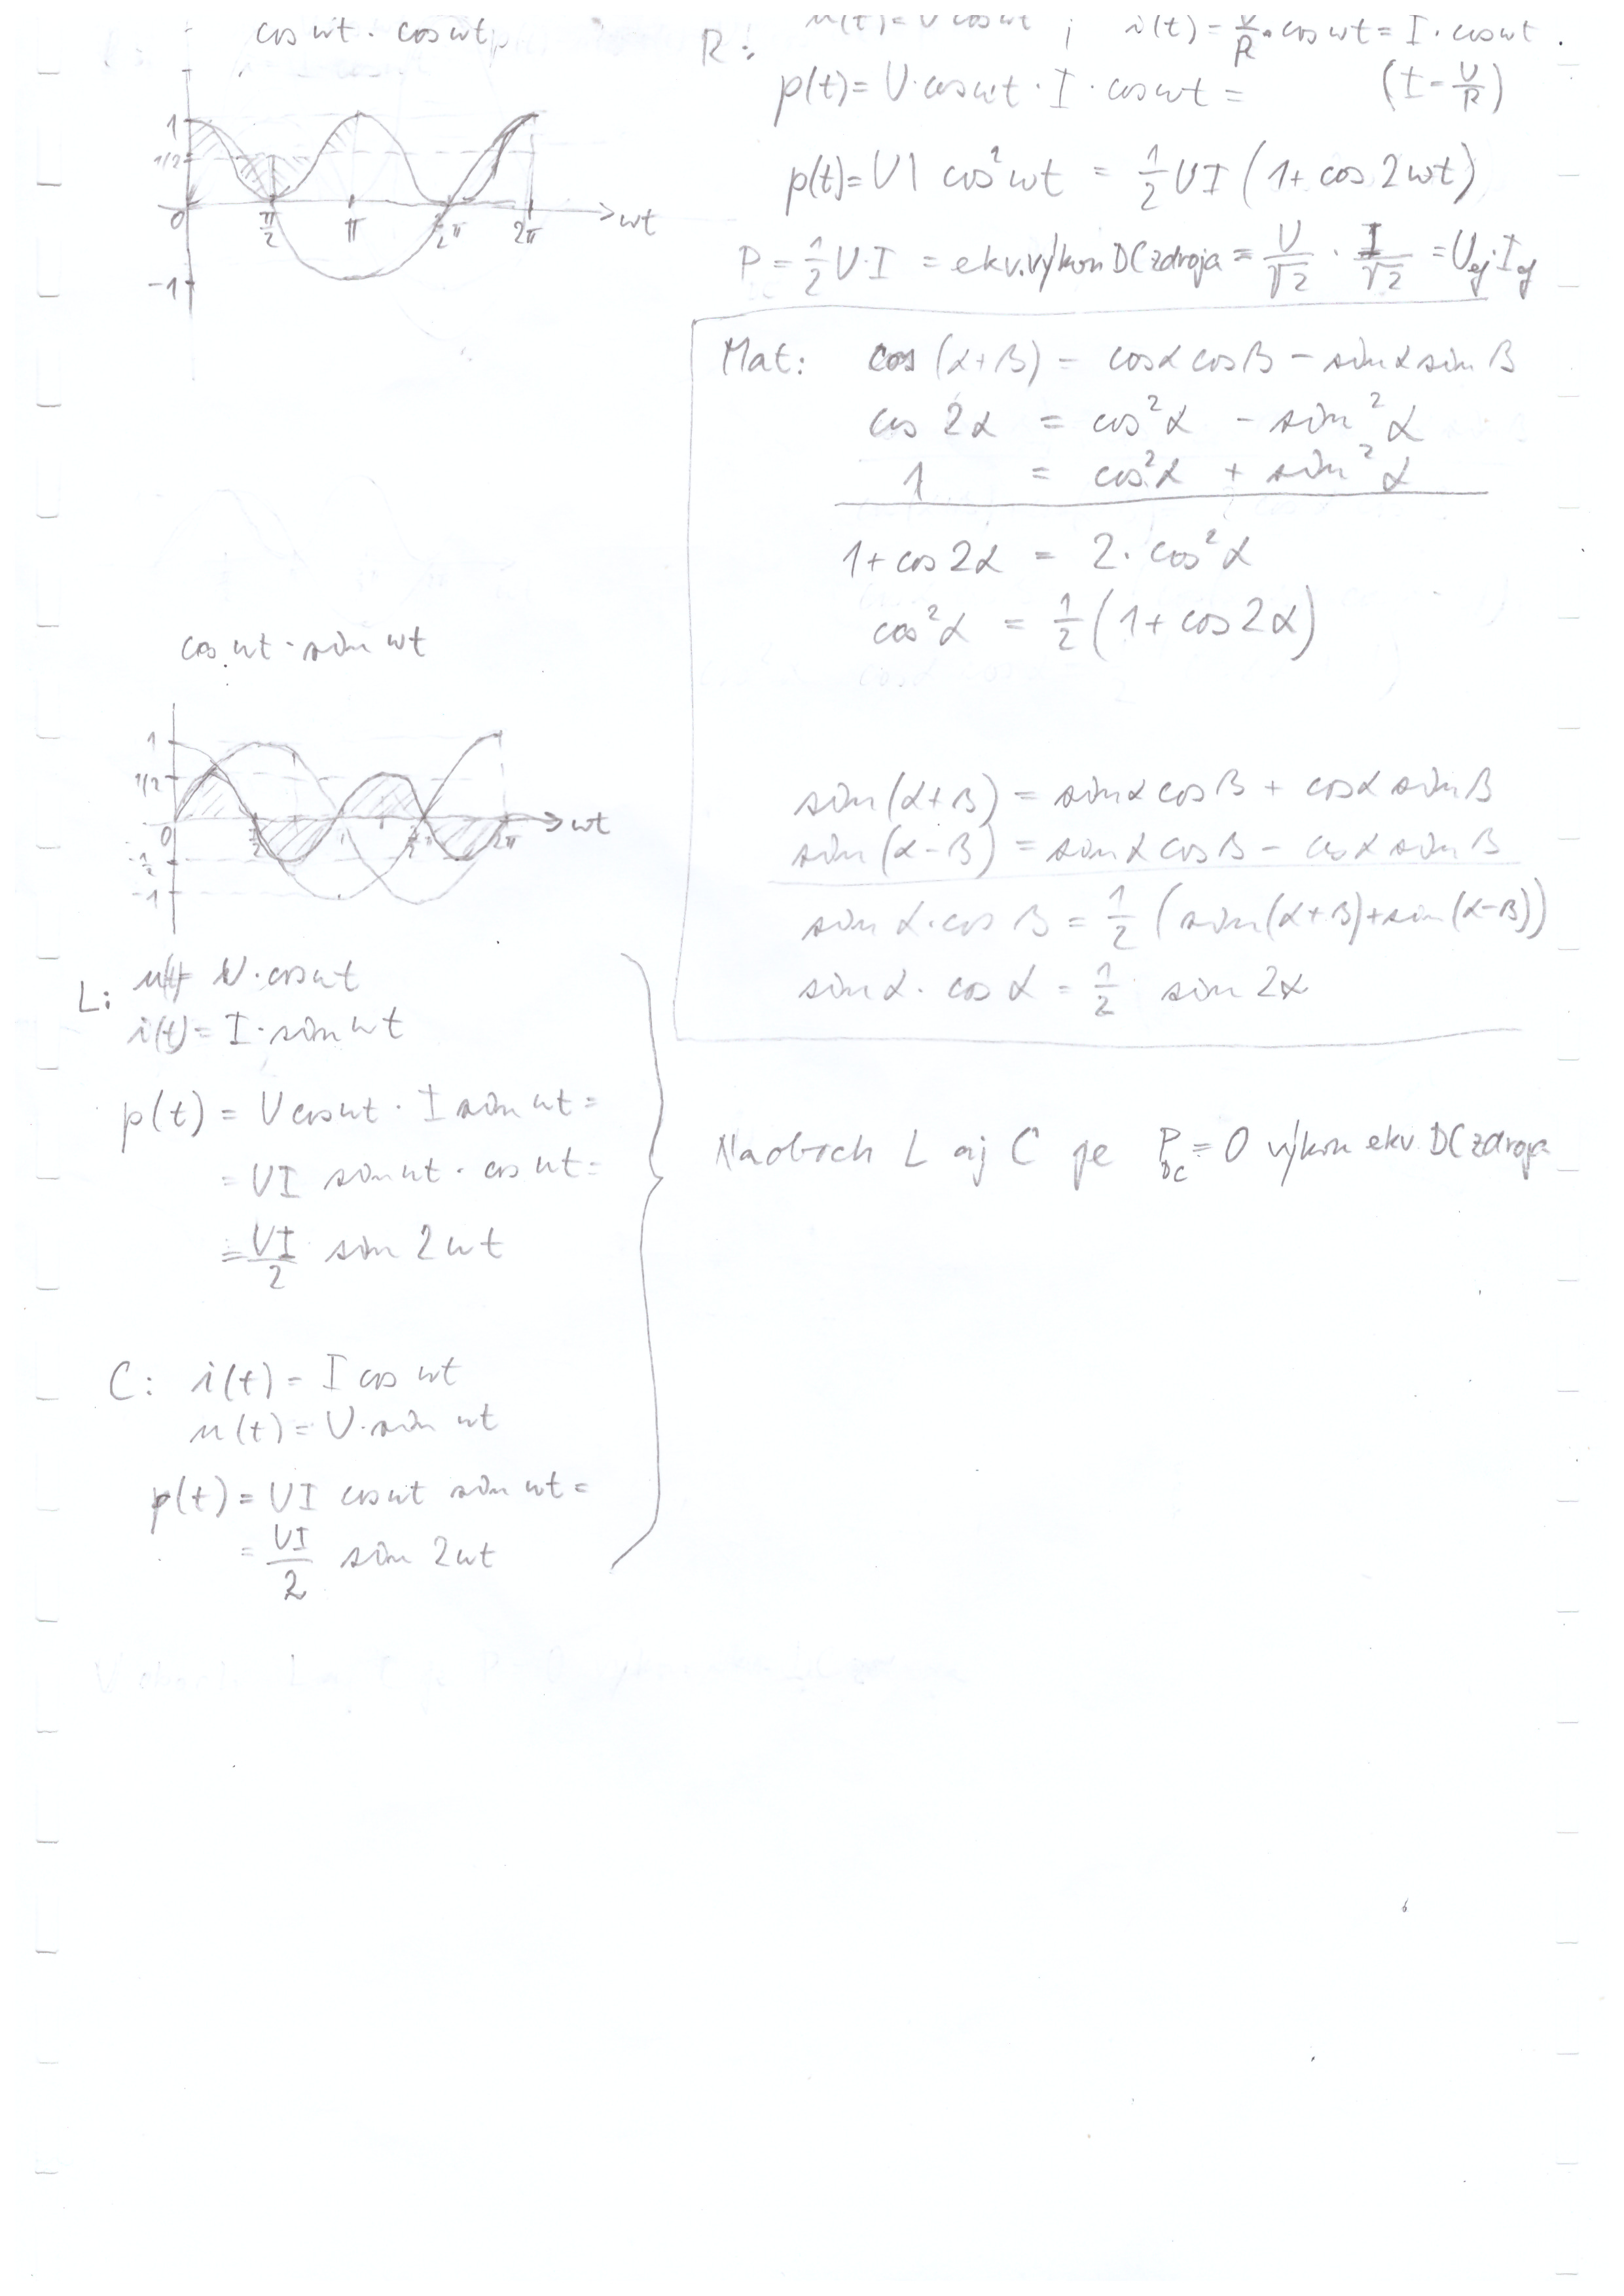 cos ωt · cos ωt
1
1/2
0
π/2
π
3/2 π
2π
→ ωt
-1
R: u(t) = U cos ωt ; i(t) = U/R · cos ωt = I · cos ωt .
p(t) = U · cos ωt · I · cos ωt = (I = U/R)
p(t) = UI cos²ωt = 1/2 UI (1 + cos 2ωt)
P = 1/2 U·I = ekv. výkon DC zdroja = U/√2 · I/√2 = Uef · Ief
Mat: cos (α+β) = cosα cosβ - sinα sinβ
cos 2α = cos²α - sin²α
1 = cos²α + sin²α
1 + cos 2α = 2 · cos²α
cos²α = 1/2 (1 + cos 2α)
sin(α+β) = sinα cosβ + cosα sinβ
sin(α-β) = sinα cosβ - cosα sinβ
sin α · cos β = 1/2 (sin(α+β) + sin(α-β))
sin α · cos α = 1/2 sin 2α
cos ωt · sin ωt
1
1/2
0
π/2
3/2 π
2π
→ ωt
-1/2
-1
L: u(t) = U · cos ωt
i(t) = I · sin ωt
p(t) = U cos ωt · I sin ωt =
= UI sin ωt · cos ωt =
= UI/2 sin 2ωt
C: i(t) = I cos ωt
u(t) = U · sin ωt
p(t) = UI cos ωt sin ωt =
= UI/2 sin 2ωt
Na oboch L aj C je PDC = 0 výkon ekv. DC zdroja